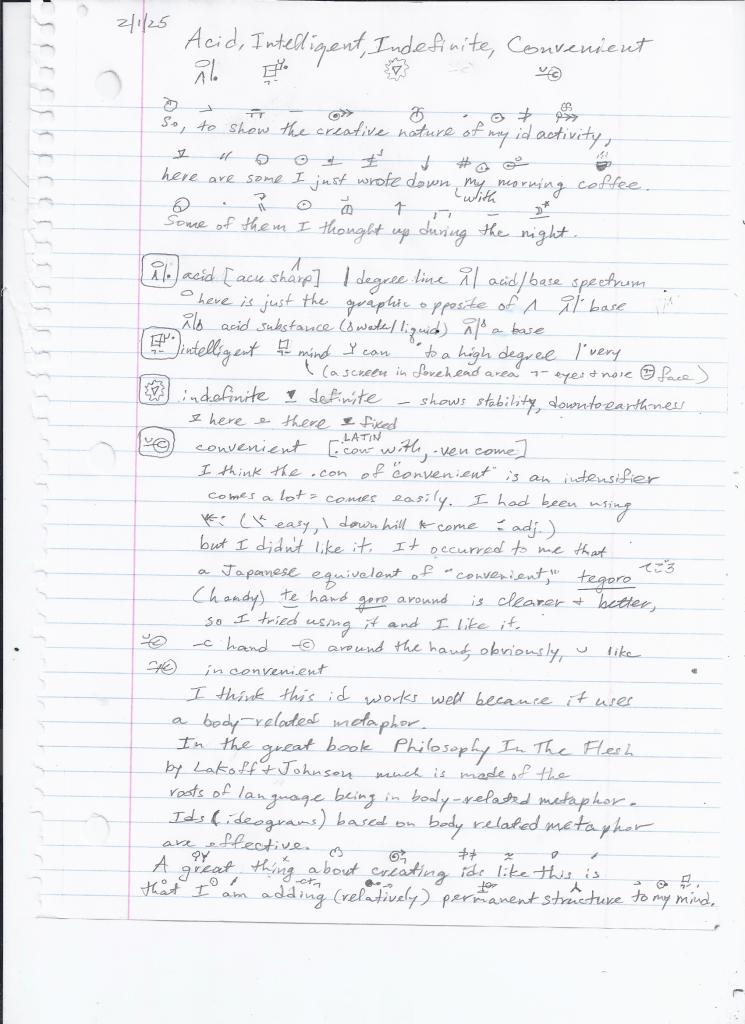 2/1/25
Acid, Intelligent, Indefinite, Convenient
So, to show the creative nature of my id activity,
here are some I just wrote down, with my morning coffee.
Some of them I thought up during the night.
acid [acu sharp] | degree line acid/base spectrum
here is just the graphic opposite of Λ base
acid substance (water/liquid) a base
intelligent mind Y can to a high degree very
(a screen in forehead area eyes + nose face)
indefinite definite – shows stability, down to earthness
here there fixed
convenient [LATIN .con with, .ven come]
I think the .con of "convenient" is an intensifier
comes a lot = comes easily. I had been using
( easy, \ downhill come adj.)
but I didn't like it. It occurred to me that
a Japanese equivalent of "convenient," tegoro てごろ
(handy) te hand goro around is clearer + better,
so I tried using it and I like it.
hand around the hand, obviously, ∪ like
inconvenient
I think this id works well because it uses
a body-related metaphor.
In the great book Philosophy In The Flesh
by Lakoff + Johnson much is made of the
roots of language being in body-related metaphor.
Ids (ideograms) based on body related metaphor
are effective.
A great thing about creating ids like this is
that I am adding (relatively) permanent structure to my mind.